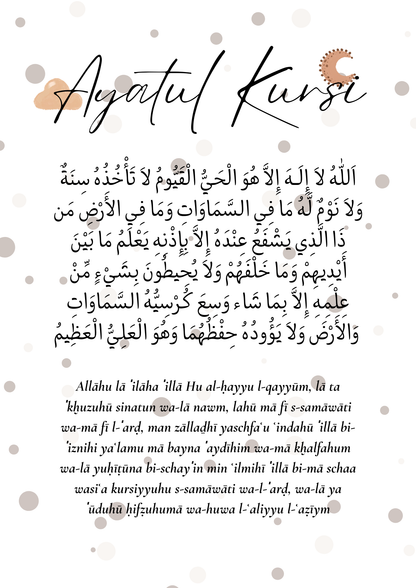 Ayatul Kursi
اَللّٰهُ لَا إِلَـهَ إِلاَّ هُوَ الْحَيُّ الْقَيُّومُ لاَ تَأْخُذُهُ سِنَةٌ
وَلاَ نَوْمٌ لَّهُ مَا فِي السَّمَاوَاتِ وَمَا فِي الأَرْضِ مَن
ذَا الَّذِي يَشْفَعُ عِنْدَهُ إِلاَّ بِإِذْنِهِ يَعْلَمُ مَا بَيْنَ
أَيْدِيهِمْ وَمَا خَلْفَهُمْ وَلاَ يُحِيطُونَ بِشَيْءٍ مِّنْ
عِلْمِهِ إِلاَّ بِمَا شَاء وَسِعَ كُرْسِيُّهُ السَّمَاوَاتِ
وَالأَرْضَ وَلاَ يَؤُودُهُ حِفْظُهُمَا وَهُوَ الْعَلِيُّ الْعَظِيمُ
Allāhu lā ʾilāha ʾillā Hu al-ḥayyu l-qayyūm, lā ta
ʾkhuzuhū sinatun wa-lā nawm, lahū mā fī s-samāwāti
wa-mā fī l-ʾarḍ, man zālladhī yaschfaʿu ʿindahū ʾillā bi-
ʾiznihī yaʿlamu mā bayna ʾaydīhim wa-mā khalfahum
wa-lā yuḥīṭūna bi-schayʾin min ʿilmihī ʾillā bi-mā schaa
wasiʿa kursiyyuhu s-samāwāti wa-l-ʾarḍ, wa-lā ya
ʾūduhū ḥifẓuhumā wa-huwa l-ʿaliyyu l-ʿaẓīym